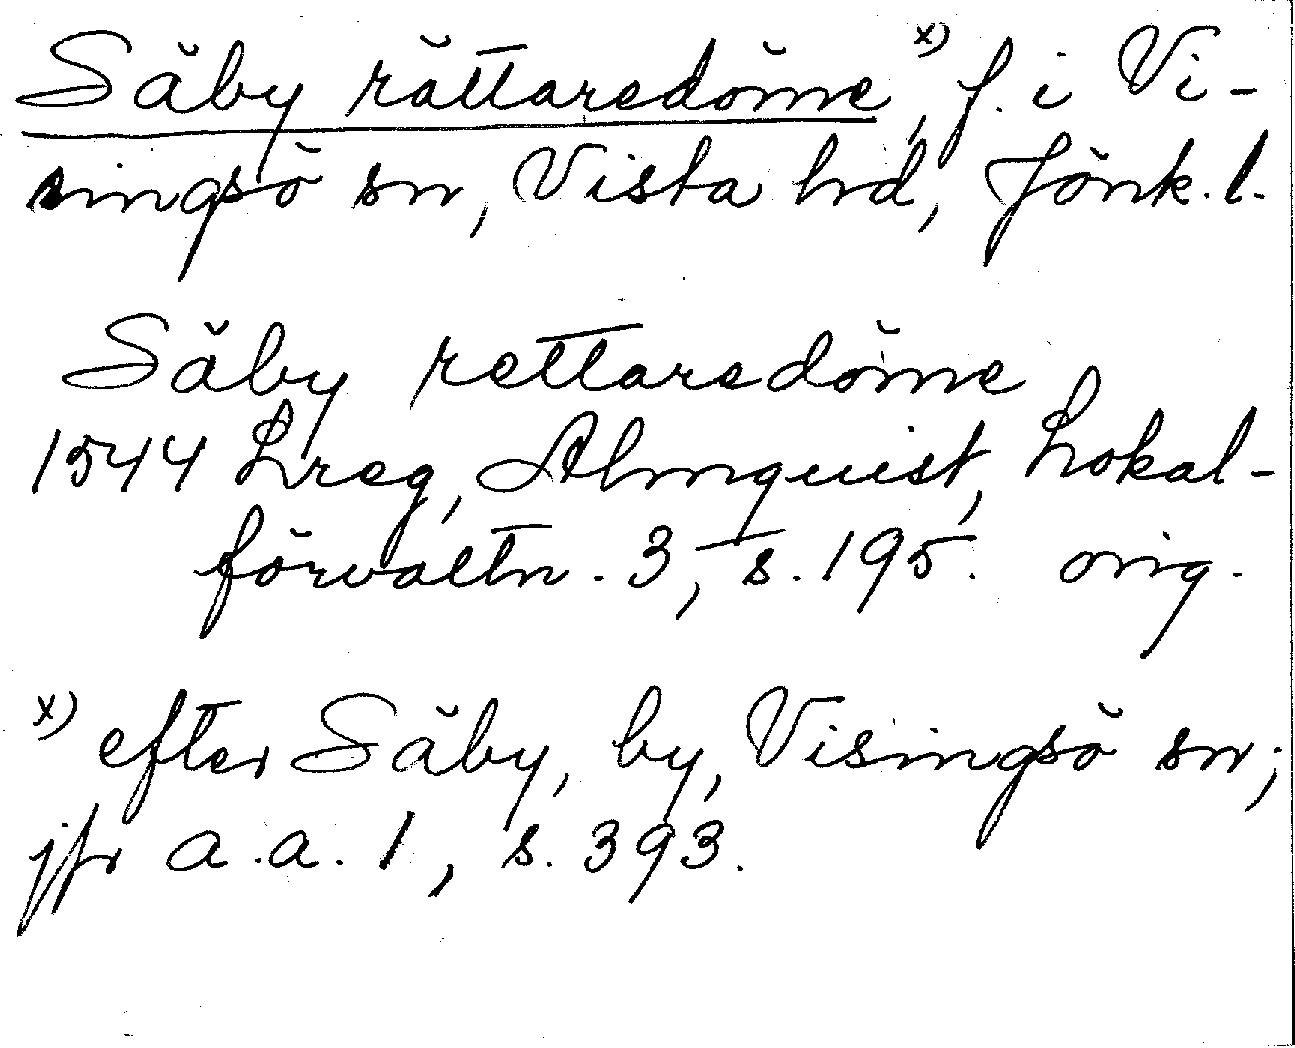 Säby rättaredöme,ˣ⁾ f. i Vi-
singsö sn, Vista hd, Jönk. l.
Säby rettaredöme
1544 Lreg, Almquist, Lokal-
förvaltn. 3, s. 195. orig.
ˣ⁾ efter Säby, by, Visingsö sn;
jfr a.a. 1, s. 393.